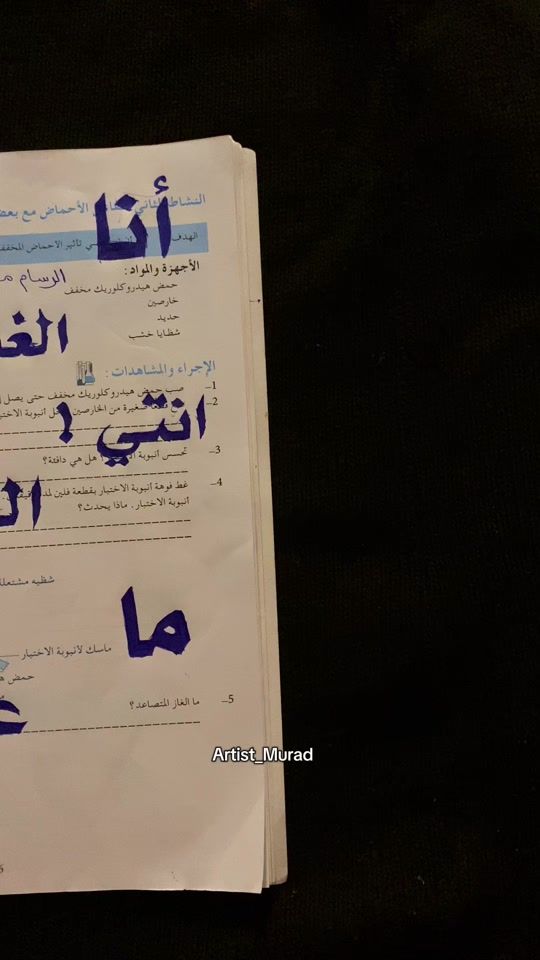 النشاط الثاني الأحماض مع بعض
أنا
الهدف تأثير الأحماض المخففة
الأجهزة والمواد :
الرسام
حمض هيدروكلوريك مخفف
خارصين
حديد
شظايا خشب
الإجراء والمشاهدات :
1– صب حمض هيدروكلوريك مخفف حتى يصل
2– صغيرة من الخارصين أنبوبة
انتي !
3– تحسس أنبوبة هل هي دافئة؟
4– غط فوهة أنبوبة الاختبار بقطعة فلين لمدة
أنبوبة الاختبار. ماذا يحدث؟
شظيه مشتعلة
ما
ماسك لأنبوبة الاختبار
حمض
5– ما الغاز المتصاعد؟
Artist_Murad